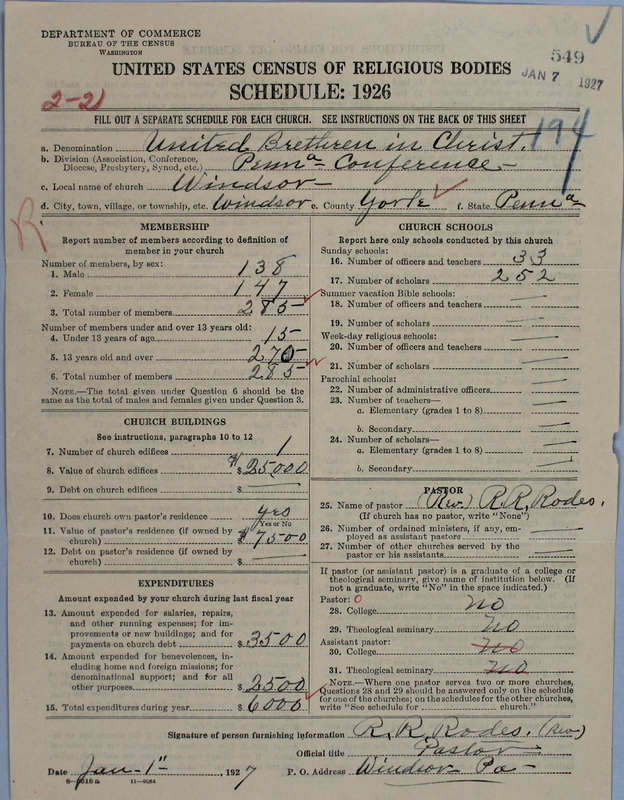 DEPARTMENT OF COMMERCE
BUREAU OF THE CENSUS
WASHINGTON
549
JAN 7 1927
UNITED STATES CENSUS OF RELIGIOUS BODIES
SCHEDULE: 1926
2-21
194
FILL OUT A SEPARATE SCHEDULE FOR EACH CHURCH. SEE INSTRUCTIONS ON THE BACK OF THIS SHEET
a. Denomination United Brethren in Christ.
b. Division (Association, Conference, Diocese, Presbytery, Synod, etc.) Penna Conference
c. Local name of church Windsor
d. City, town, village, or township, etc. Windsor e. County York f. State Penna
R
MEMBERSHIP
Report number of members according to definition of
member in your church
Number of members, by sex:
1. Male 138
2. Female 147
3. Total number of members. 285
Number of members under and over 13 years old:
4. Under 13 years of age 15
5. 13 years old and over 270
6. Total number of members 285
NOTE.—The total given under Question 6 should be
same as the total of males and females given under Question 3.
CHURCH BUILDINGS
See instructions, paragraphs 10 to 12
7. Number of church edifices 1
8. Value of church edifices $ 25000
9. Debt on church edifices $
10. Does church own pastor's residence yes
Yes or No
11. Value of pastor's residence (if owned by
church) $ 7500
12. Debt on pastor's residence (if owned by
church) $
EXPENDITURES
Amount expended by your church during last fiscal year
13. Amount expended for salaries, repairs,
and other running expenses; for im-
provements or new buildings; and for
payments on church debt $ 3500
14. Amount expended for benevolences, in-
cluding home and foreign missions; for
denominational support; and for all
other purposes $ 2500
15. Total expenditures during year $ 6000
CHURCH SCHOOLS
Report here only schools conducted by this church
Sunday schools:
16. Number of officers and teachers 33
17. Number of scholars 252
Summer vacation Bible schools:
18. Number of officers and teachers
19. Number of scholars
Week-day religious schools:
20. Number of officers and teachers
21. Number of scholars
Parochial schools:
22. Number of administrative officers
23. Number of teachers—
a. Elementary (grades 1 to 8)
b. Secondary
24. Number of scholars—
a. Elementary (grades 1 to 8)
b. Secondary
PASTOR
25. Name of pastor (Rev.) R. R. Rodes.
(If church has no pastor, write "None")
26. Number of ordained ministers, if any, em-
ployed as assistant pastors
27. Number of other churches served by the
pastor or his assistants
If pastor (or assistant pastor) is a graduate of a college or
theological seminary, give name of institution below. (If
not a graduate, write "No" in the space indicated.)
Pastor: 0
28. College no
29. Theological seminary no
Assistant pastor:
30. College no
31. Theological seminary no
NOTE.—Where one pastor serves two or more churches,
Questions 28 and 29 should be answered only on the schedule
for one of the churches; on the schedules for the other churches,
write "See schedule for church."
Signature of person furnishing information R. R. Rodes. (Rev)
Official title Pastor
Date Jan-1" , 1927 P. O. Address Windsor Pa
8—6618a 11—9584